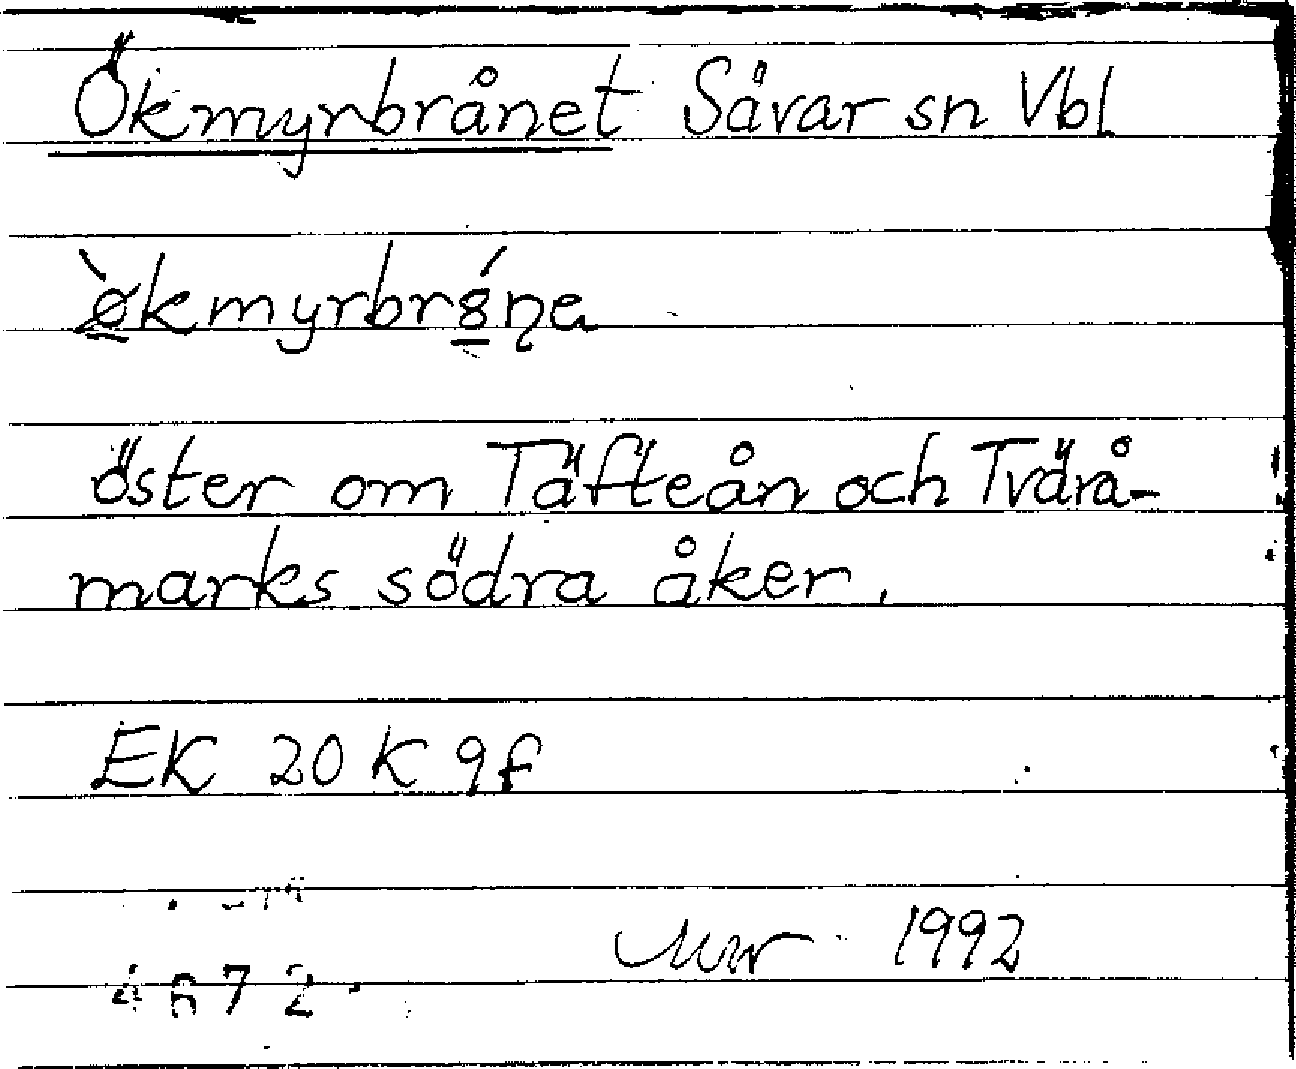 Ökmyrbrånet Sävar sn Vbl
ø̀kmyrbr8́ṇe
öster om Täfteån och Tvärå-
marks södra åker.
EK 20 K 9f
1992
4672